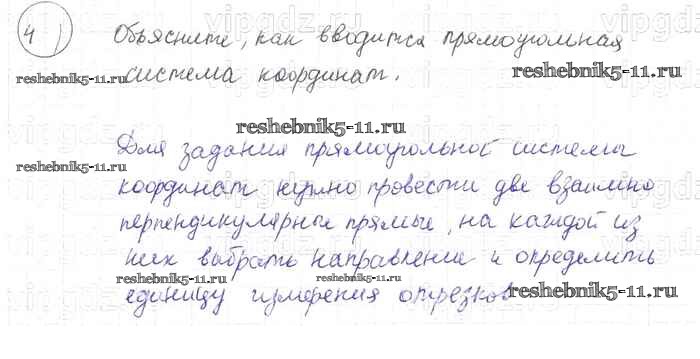 4) Объясните, как вводится прямоугольная
система координат.
reshebnik5-11.ru
reshebnik5-11.ru
reshebnik5-11.ru
Для задания прямоугольной системы
reshebnik5-11.ru
координат нужно провести две взаимно
перпендикулярные прямые, на каждой из
них выбрать направление и определить
reshebnik5-11.ru
reshebnik5-11.ru
единицу измерения отрезков
reshebnik5-11.ru